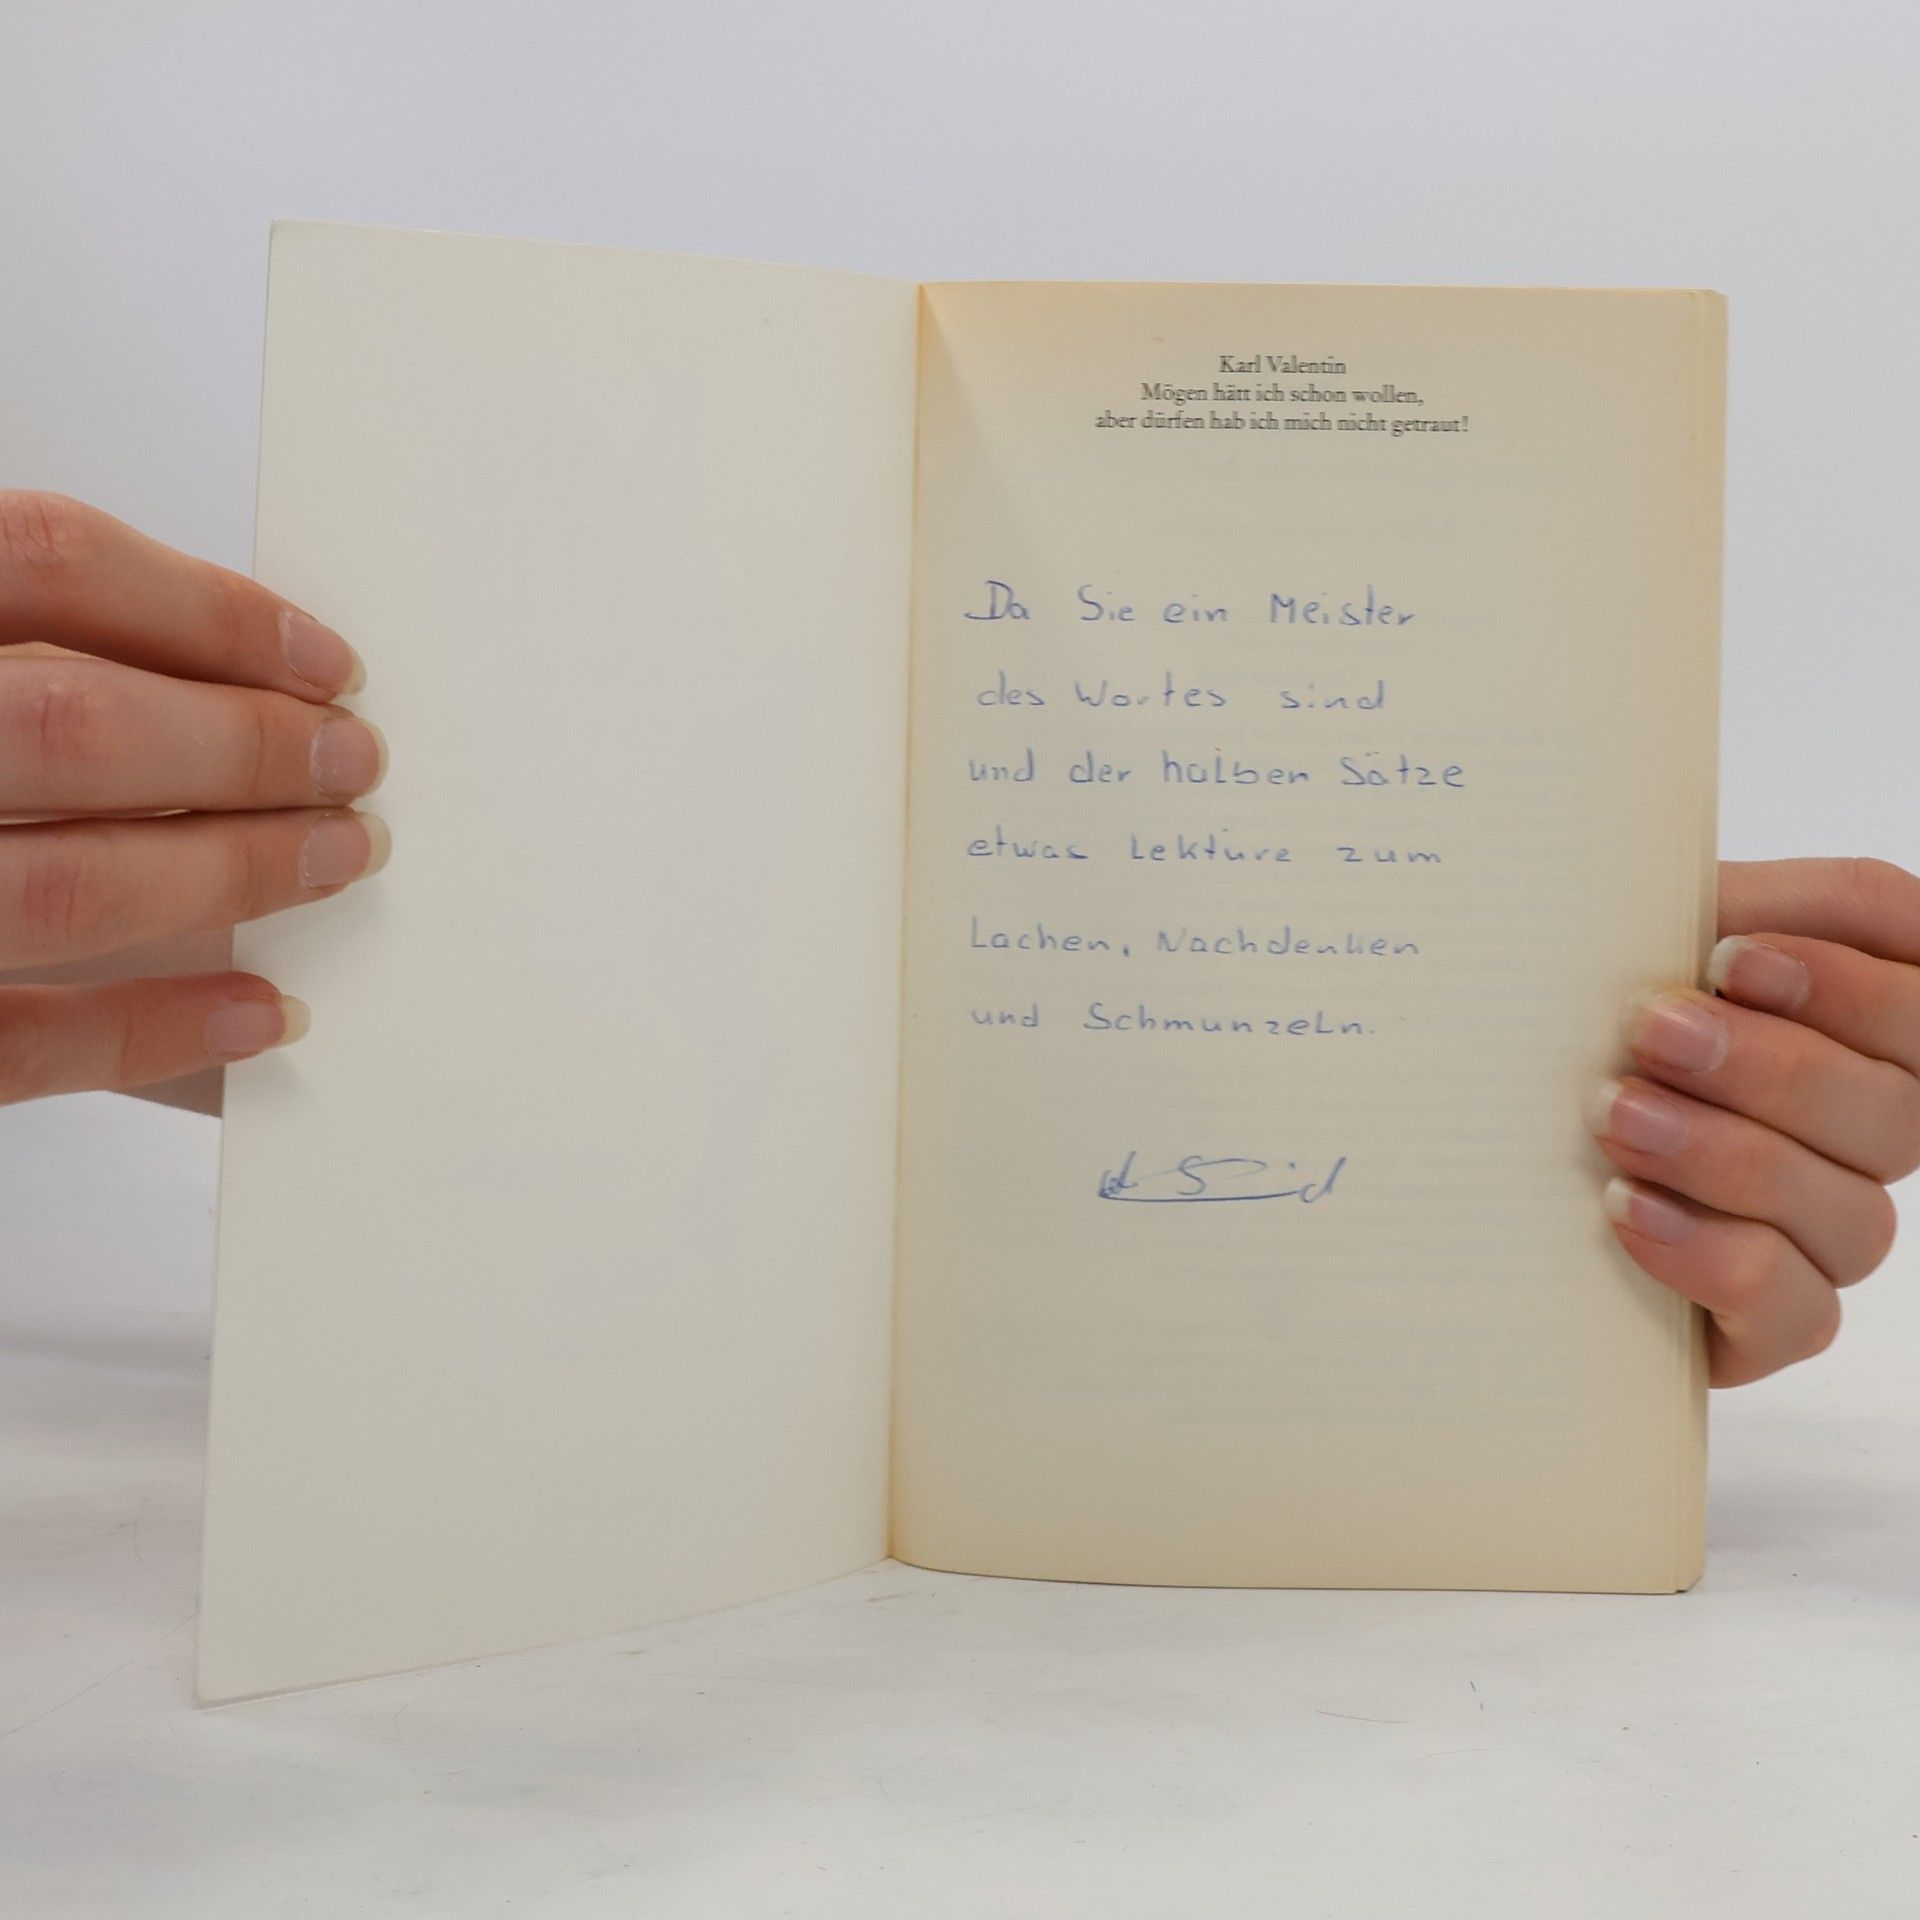 Karl Valentin
Mögen hätt ich schon wollen,
aber dürfen hab ich mich nicht getraut!
Da Sie ein Meister
des Wortes sind
und der halben Sätze
etwas Lektüre zum
Lachen, Nachdenken
und Schmunzeln.